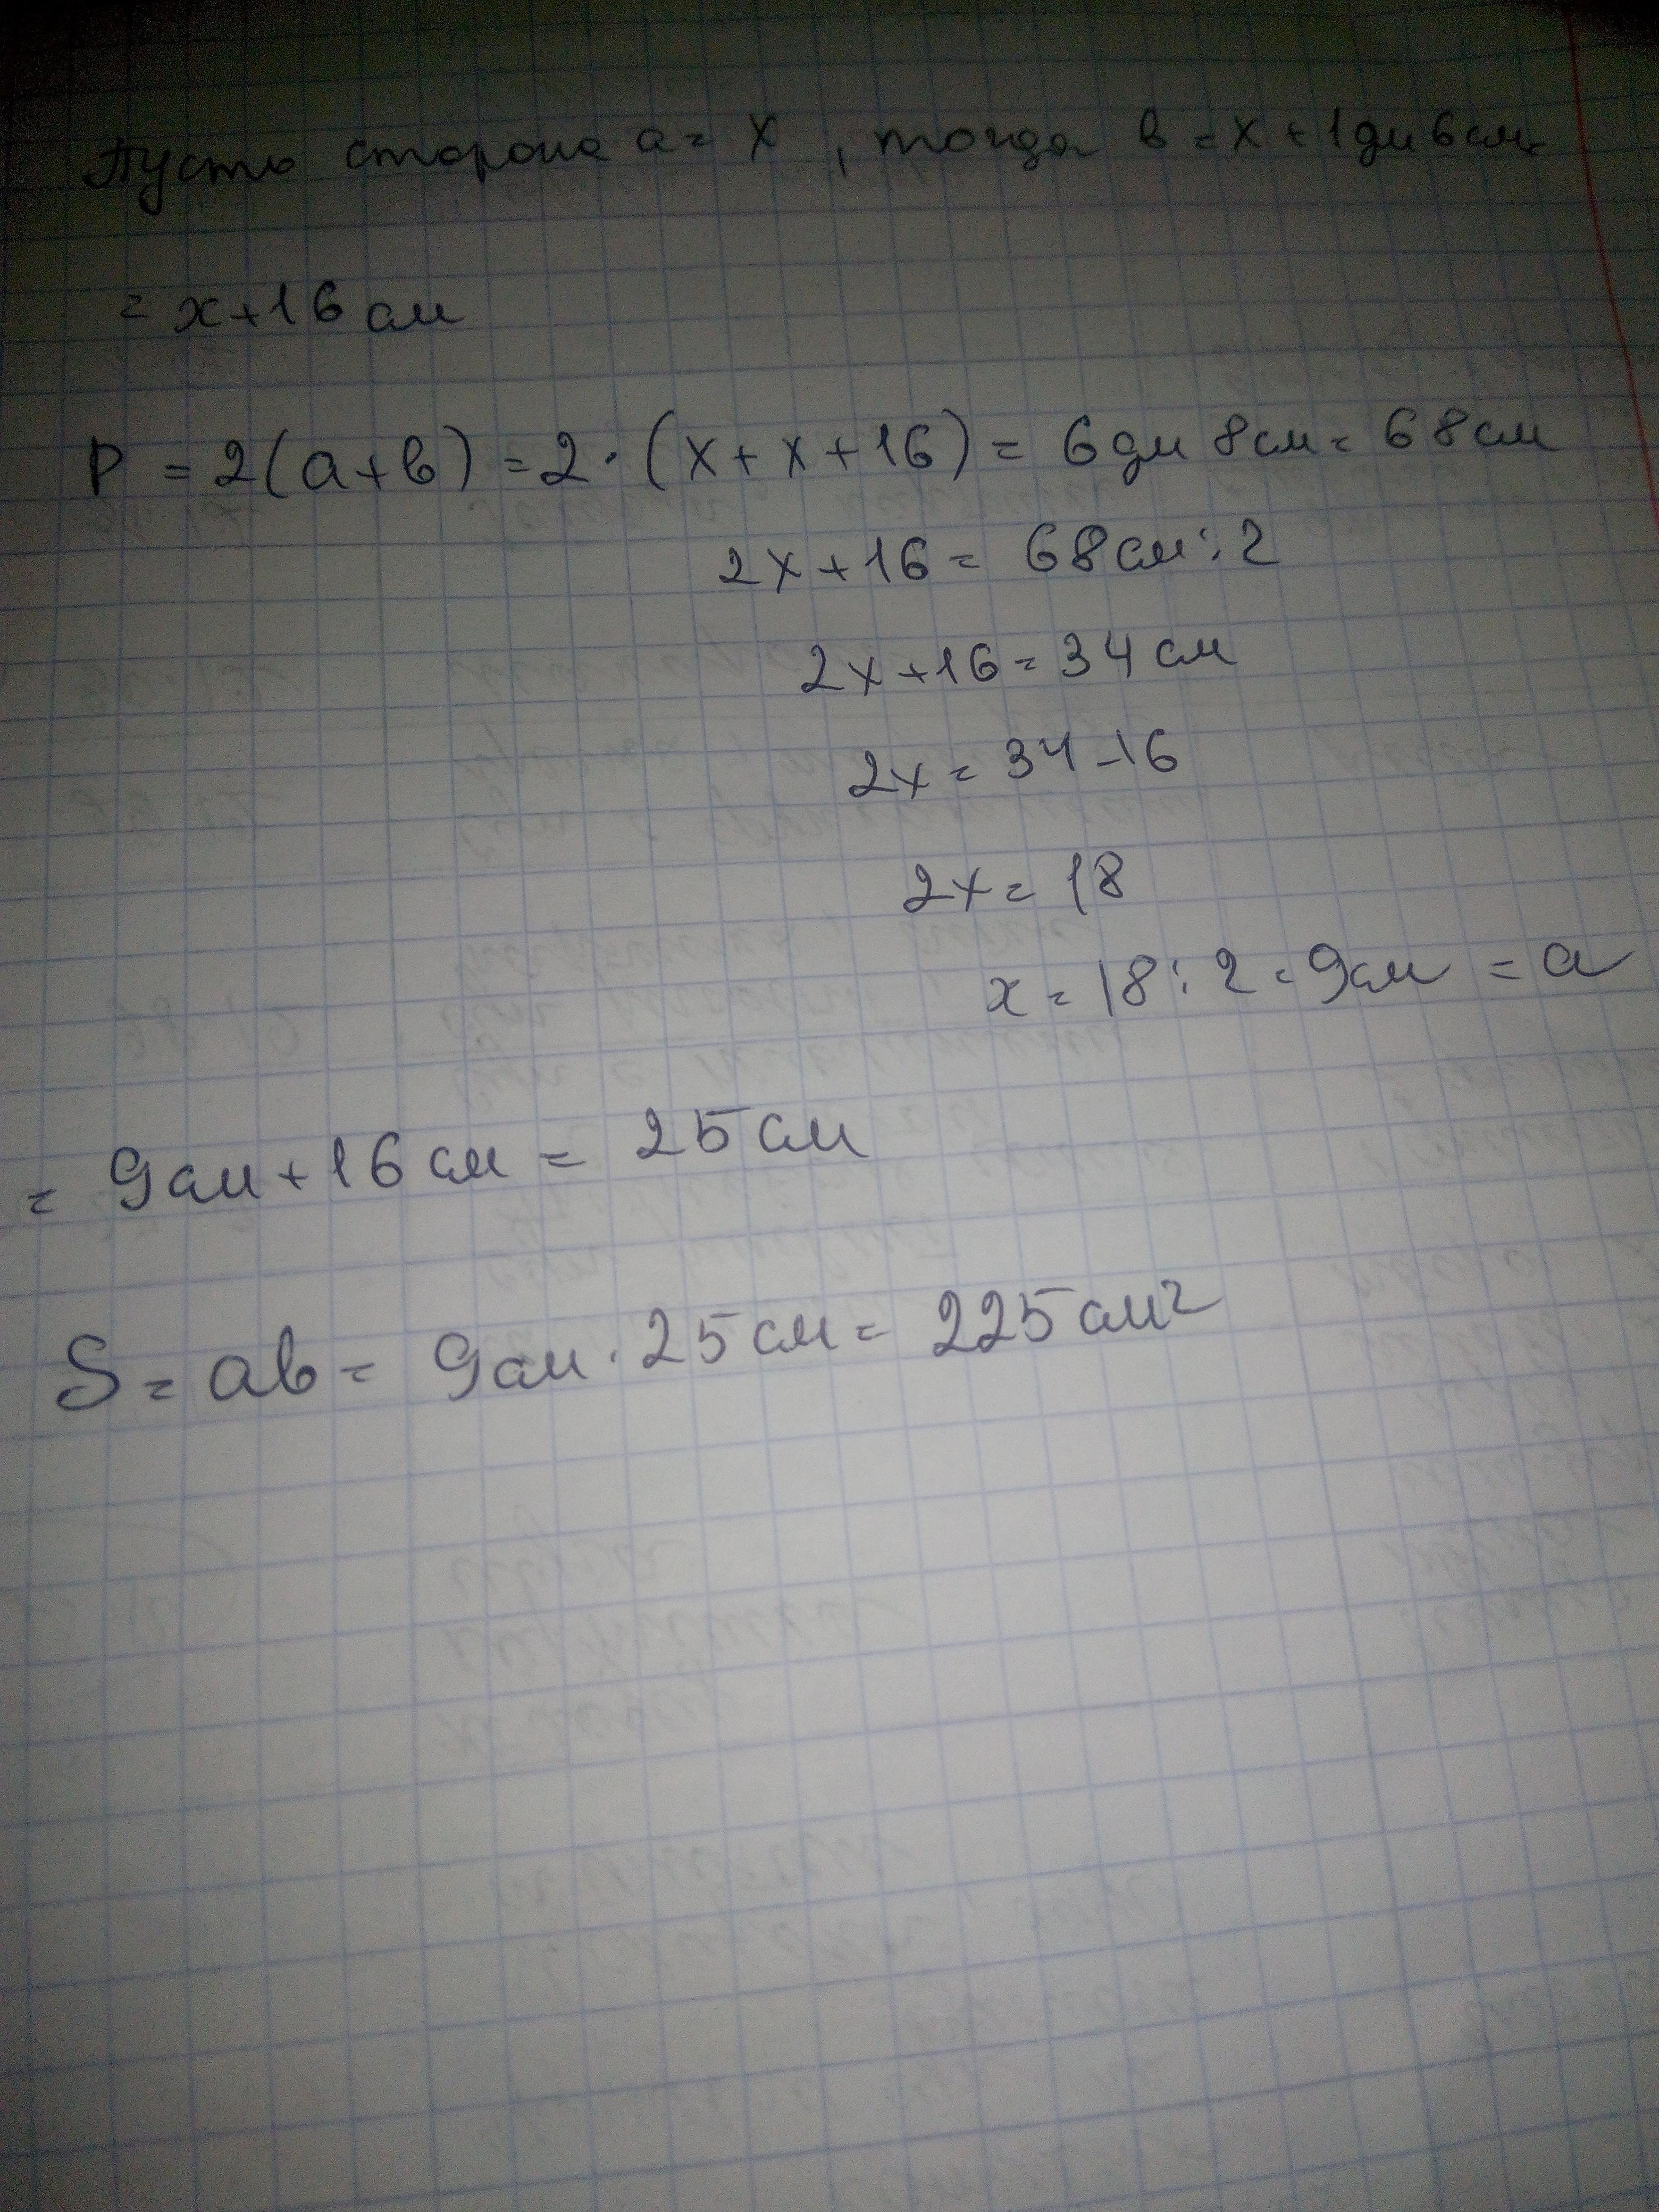 Пусть сторона a = x, тогда в = x + 1 дм 6 см =
= x + 16 см
P = 2(a+в) = 2 · (x + x + 16) = 6 дм 8 см = 68 см
2x + 16 = 68 см : 2
2x + 16 = 34 см
2x = 34 - 16
2x = 18
x = 18 : 2 = 9 см = a
= 9 см + 16 см = 25 см
S = aв = 9 см · 25 см = 225 см²